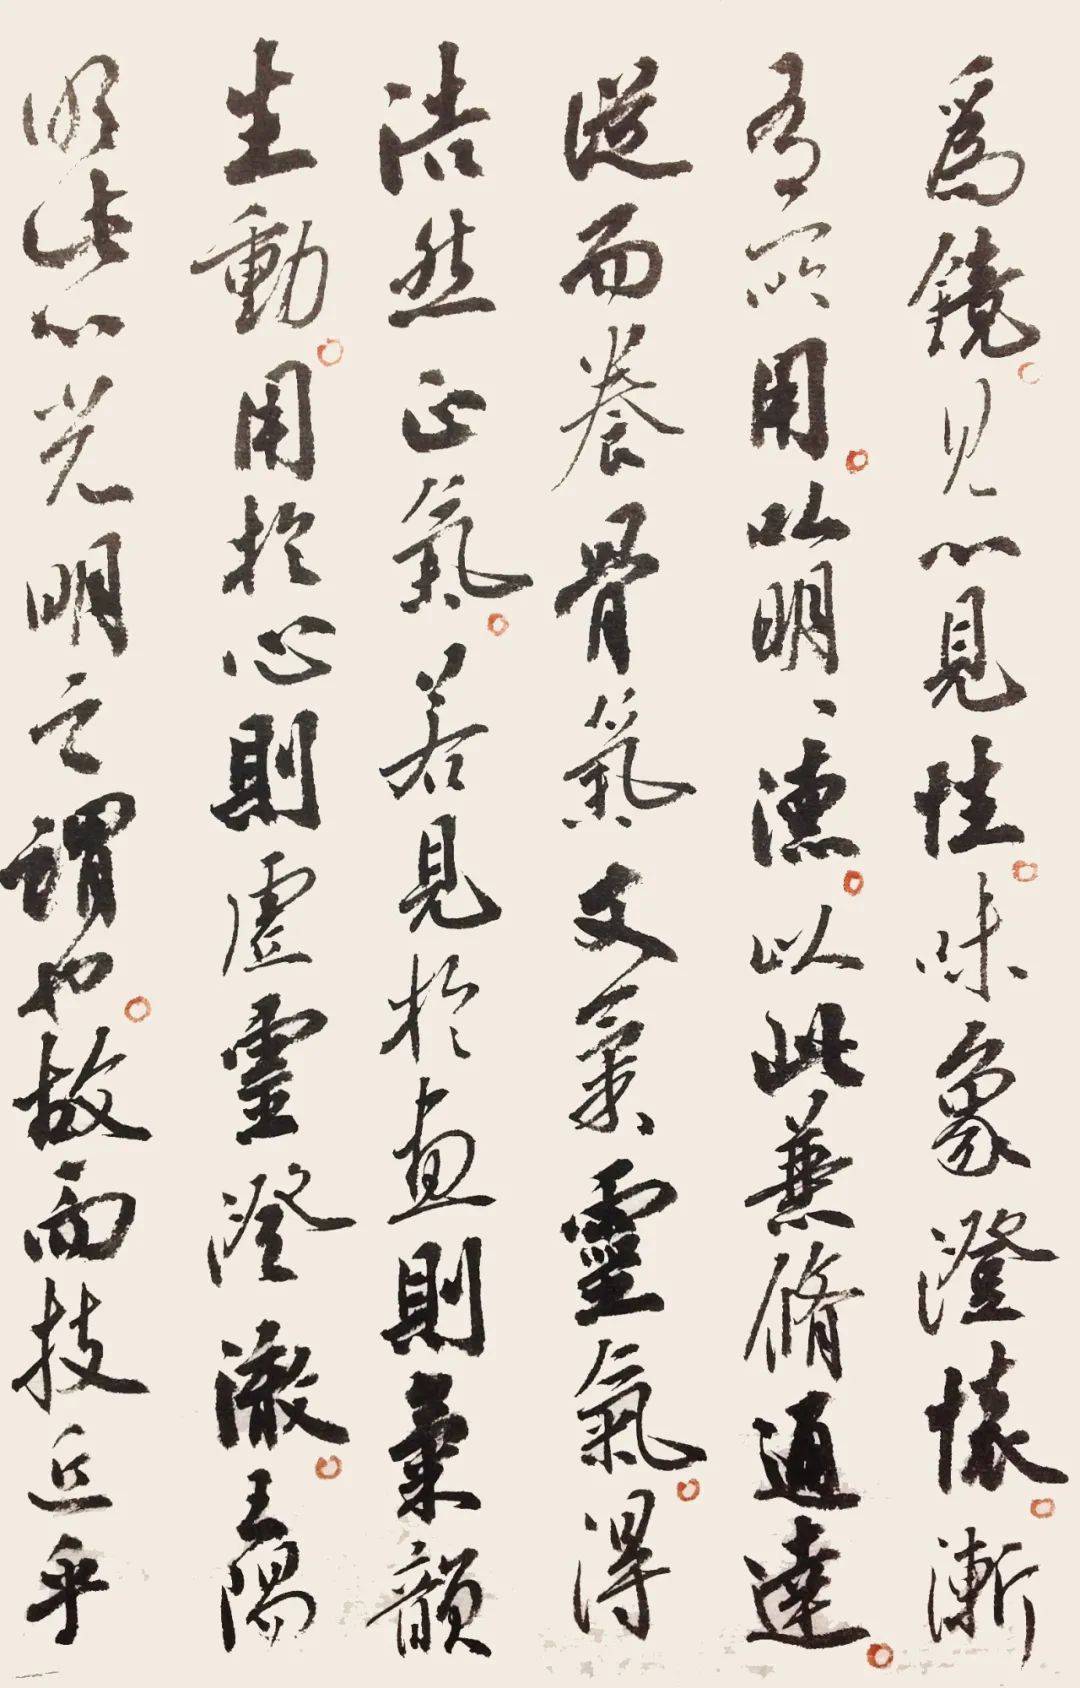 爲鏡見心見性味象澄懷漸
有所用以明明德以此兼脩通達
從而養骨氣文氣靈氣得
浩然正氣若見於畫則氣韻
生動用於心則虛靈澄澈王陽
明此心光明之謂也故而技近乎